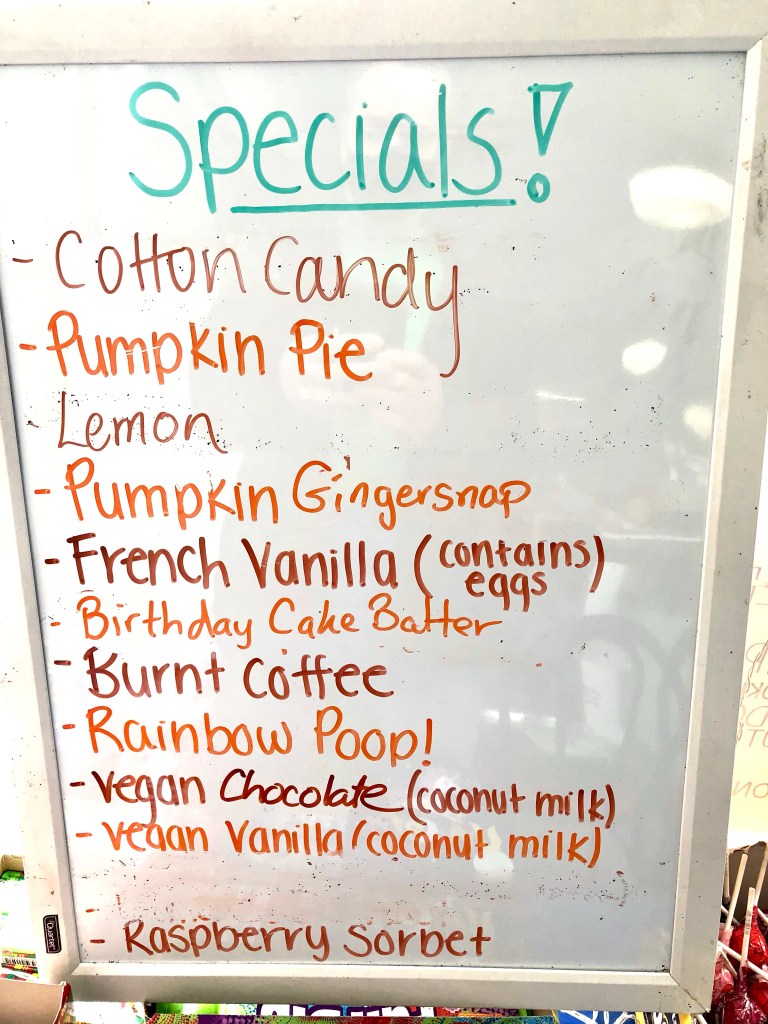 Specials!
- Cotton Candy
- Pumpkin Pie
- Lemon
- Pumpkin Gingersnap
- French Vanilla (contains eggs)
- Birthday Cake Batter
- Burnt Coffee
- Rainbow Poop!
- Vegan Chocolate (coconut milk)
- Vegan Vanilla (coconut milk)
-
- Raspberry Sorbet
Quartet